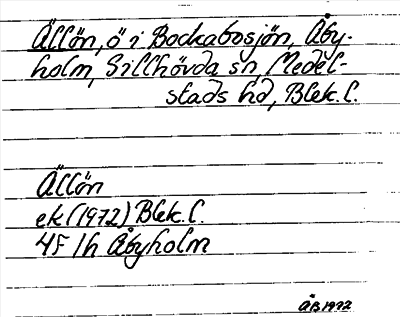 Ällön, ö i Bockabosjön, Åby-
holm, Sillhövda sn, Medel-
stads hd, Blek. l.
Ällön
ek (1972) Blek. l.
4F 1h Åbyholm
ÅB 1972